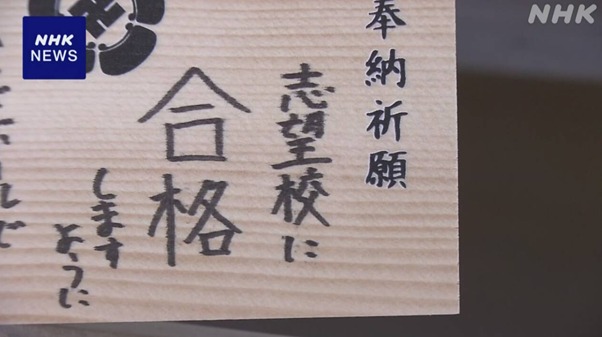 NHK
NEWS
NHK
奉納祈願
志望校に
合格
します
ように